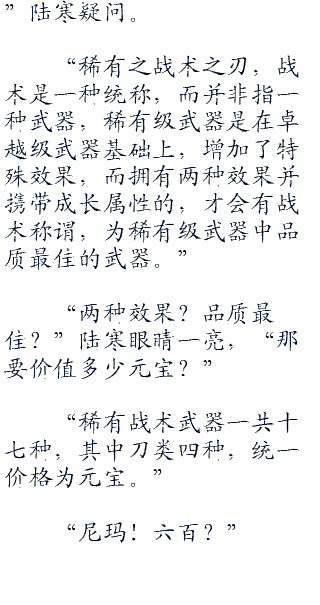 ”陆寒疑问。
“稀有之战术之刃，战
术是一种统称，而并非指一
种武器，稀有级武器是在卓
越级武器基础上，增加了特
殊效果，而拥有两种效果并
携带成长属性的，才会有战
术称谓，为稀有级武器中品
质最佳的武器。”
“两种效果？品质最
佳？”陆寒眼睛一亮，“那
要价值多少元宝？”
“稀有战术武器一共十
七种，其中刀类四种，统一
价格为元宝。”
“尼玛！六百？”